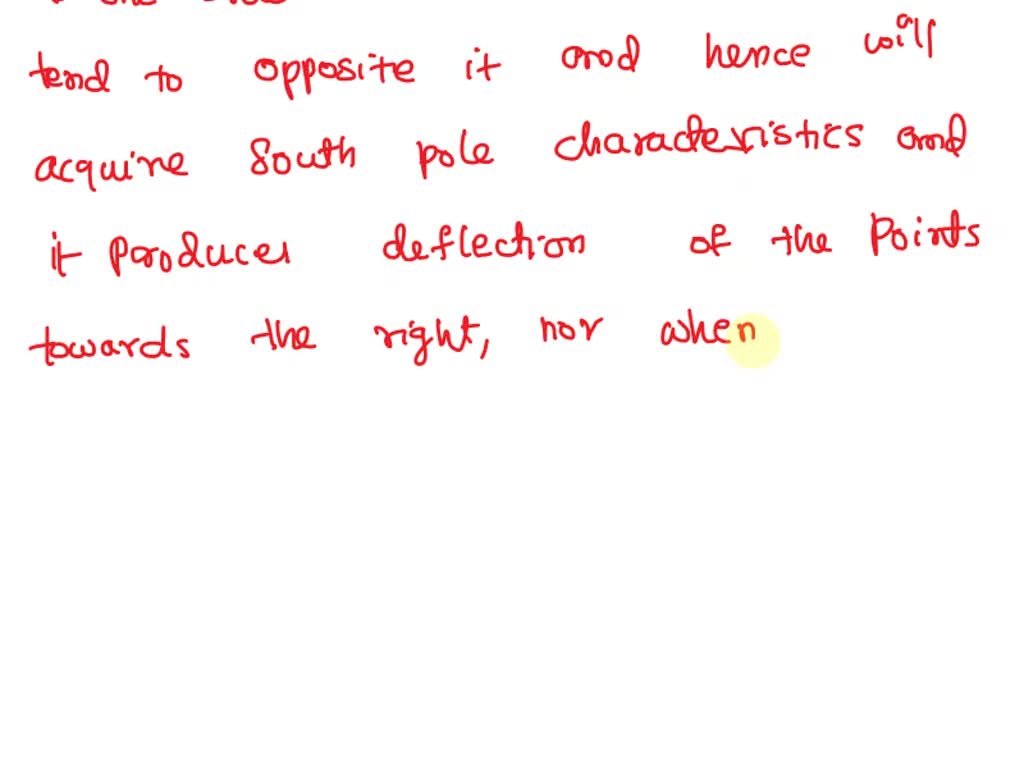 tend to opposite it and hence will
acquire South pole characteristics and
it produces deflection of the points
towards the right, nor when